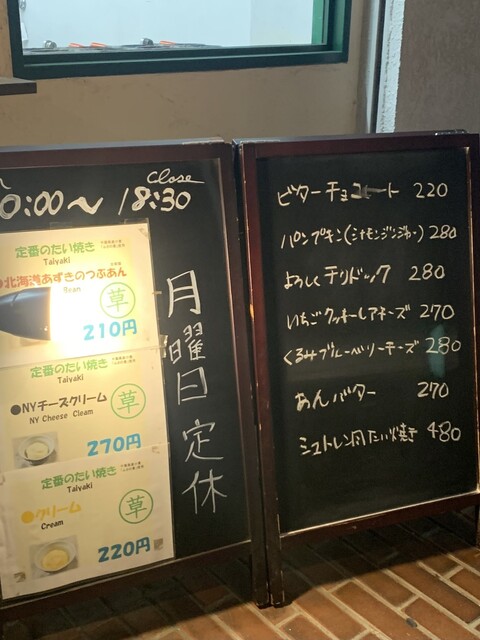 Close
0:00〜18:30
定番のたい焼き
Taiyaki
北海道あずきのつぶあん
Bean
草
210円
定番のたい焼き
Taiyaki
●NYチーズクリーム
NY Cheese Cleam
草
270円
定番のたい焼き
Taiyaki
●クリーム
Cream
草
220円
月曜日定休
ビターチョコレート 220
パンプキン(シナモンジンジャー) 280
チリドック 280
いちごクッキーレアチーズ 270
くるみブルーベリーチーズ 280
あんバター 270
シュトレン風たい焼き 480